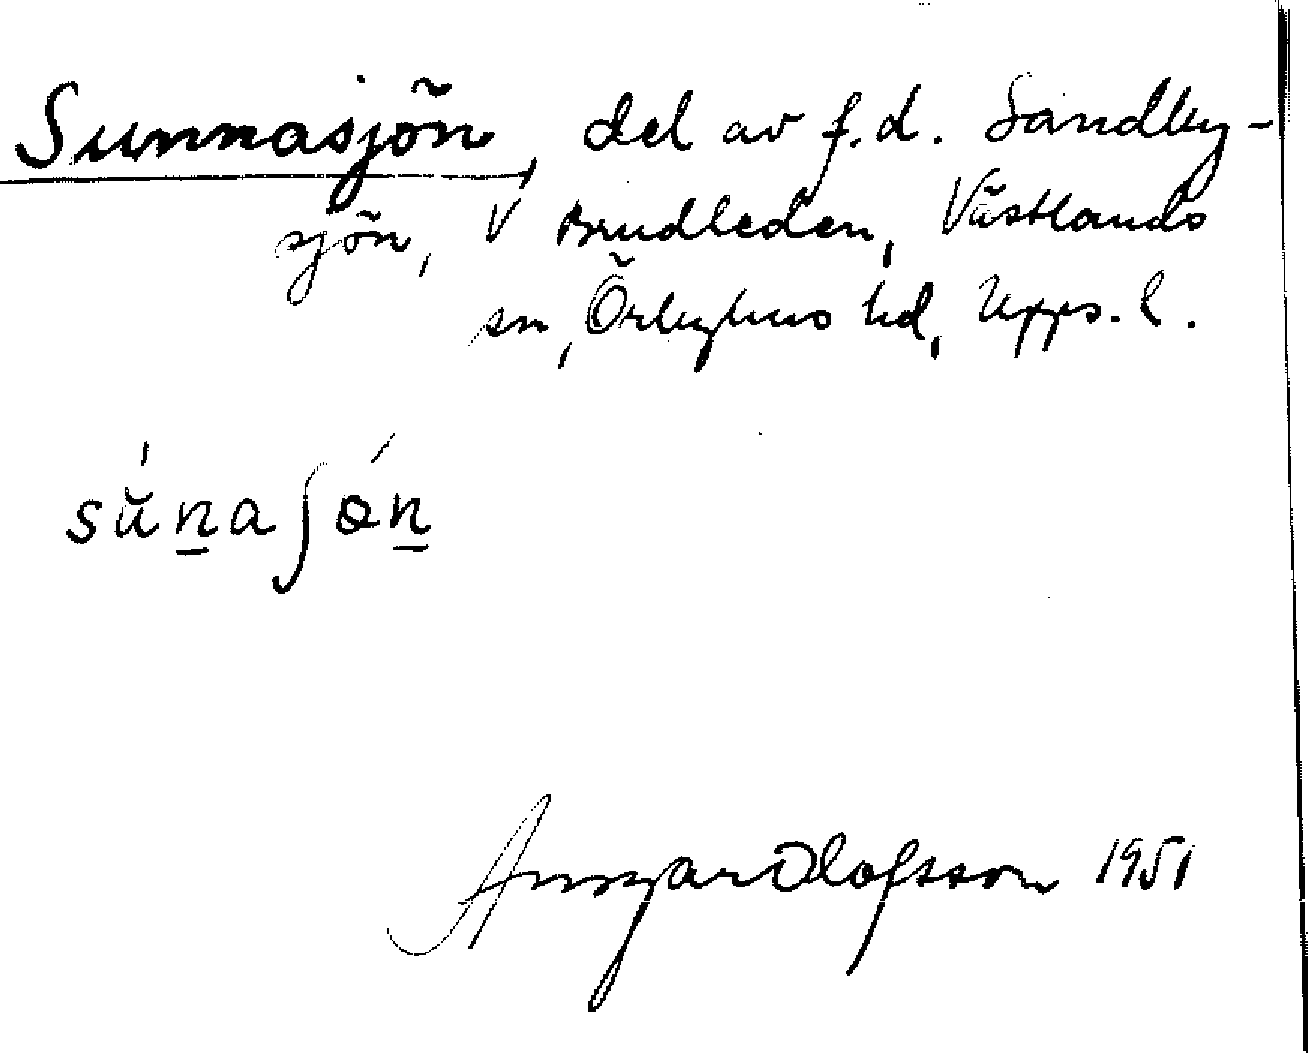 Sunnasjön, del av f.d. Sandby-
sjön, V Brudleden, Västlands
sn, Örbyhus hd, Upps. l.
sŭ́n̲aʃǿn̲
Ansgar Olofsson 1951